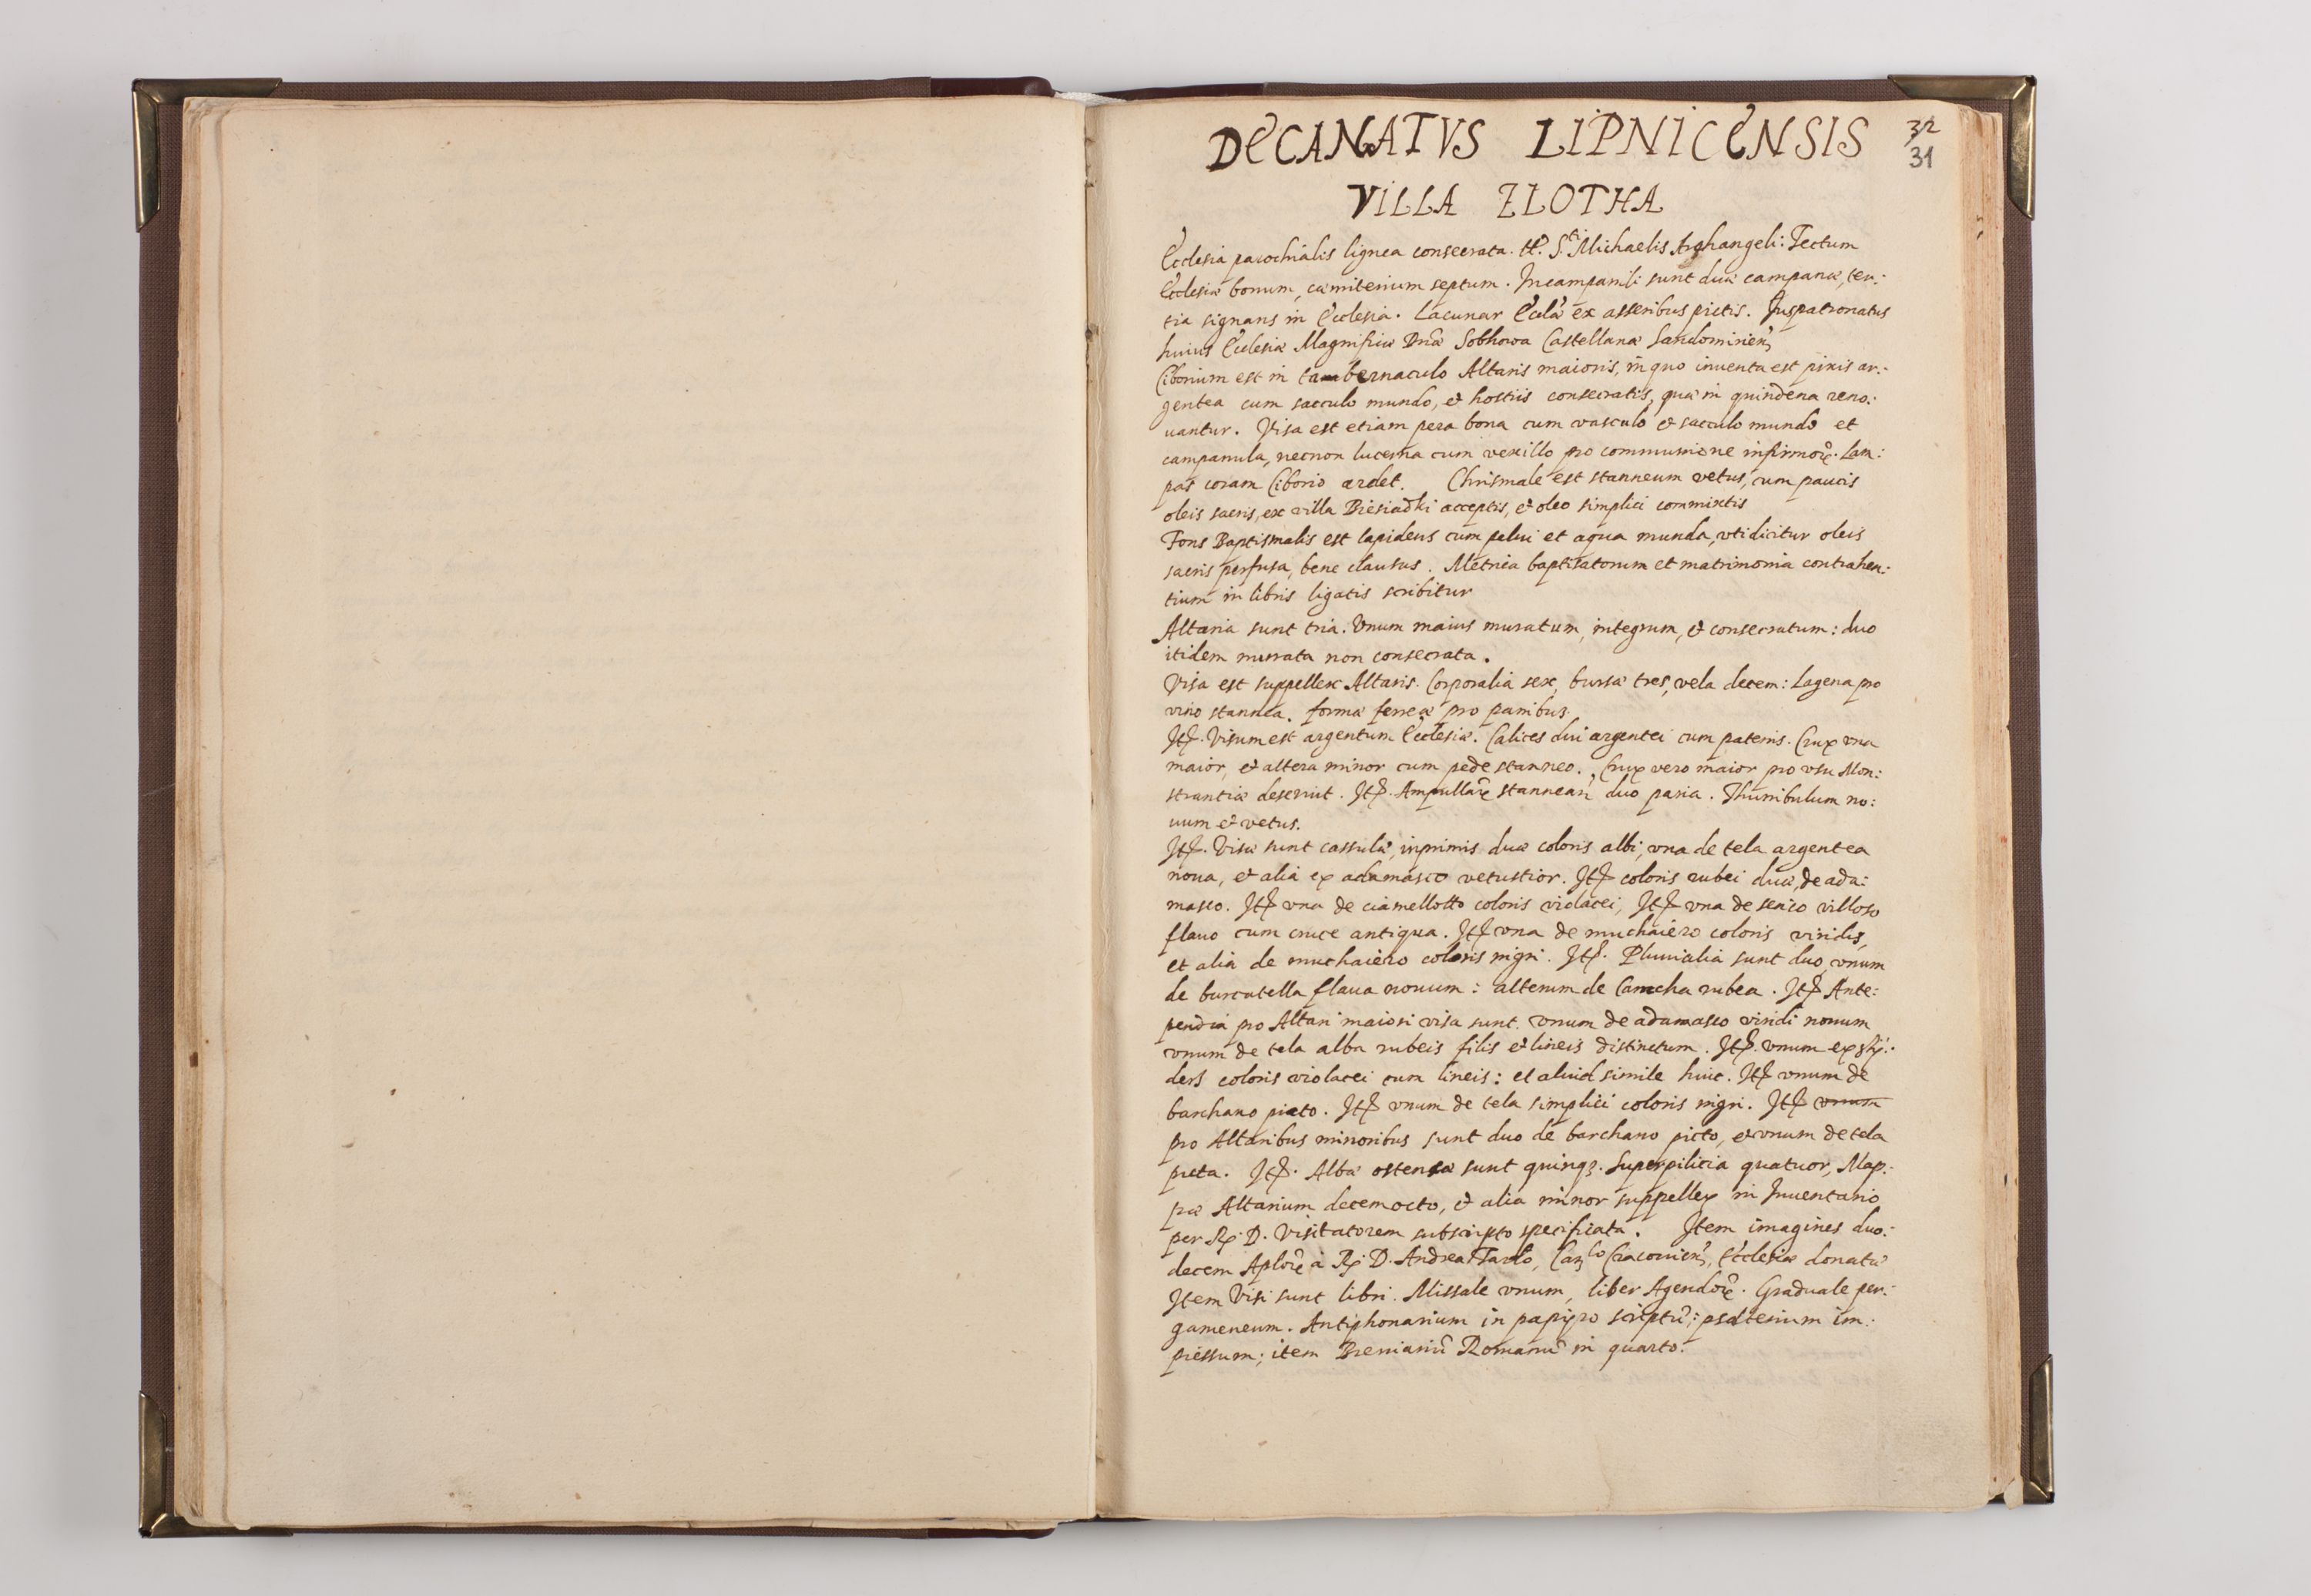 DECANATVS LIPNICENSIS
32
31
VILLA ZLOTHA
Ecclesia parochialis lignea consecrata. tt. S.ti Michaelis Archangeli: Tectum
Ecclesiæ bonum, cæmiterium septum. In campanili sunt duæ campanæ, ter:
tia signans in Ecclesia. Lacunar Eccłæ ex asseribus pictis. Juspatronatus
huius Ecclesiæ Magnificæ Dnæ Sobkowa Castellanæ Sandomirien̄
Ciborium est in tabernaculo Altaris maioris, in quo inuenta est pixis ar:
gentea cum sacculo mundo, et hostiis consecratis, quæ in quindena reno:
uantur. Visa est etiam pera bona cum vasculo et sacculo mundo et
campanula, necnon lucerna cum vexillo pro communione infirmor̃. Lam:
pas coram Ciborio ardet. Chrismale est stanneum vetus, cum paucis
oleis sacris, ex villa Biesiadki acceptis, et oleo simplici commixtis
Fons Baptismalis est lapideus cum pelui et aqua munda, vti dicitur oleis
sacris perfusa, bene clausus. Metrica baptisatorum et matrimonia contrahen:
tium in libris ligatis scribitur
Altaria sunt tria. Vnum maius muratum, integrum, et consecratum: duo
itidem murata non consecrata.
Visa est suppellex Altaris. Corporalia sex, bursæ tres, vela decem: Lagena pro
vino stannea. formæ ferreæ pro panibus.
Itē. Visum est argentum Ecclesiæ. Calices dui argentei cum patenis. Crux vna
maior, et altera minor cum pede stanneo. Crux vero maior pro vsu Mon:
strantiæ deseruit. Itē. Ampullar̃ stannear̃ duo paria. Thuribulum no:
uum et vetus.
Itē. Visæ sunt cassulæ, inprimis duæ coloris albi, vna de tela argentea
noua, et alia ex adamasco vetustior. Itē coloris rubei duæ, de ada:
masco. Itē vna de ciamellotto coloris violacei, Itē vna de serico villoso
flauo cum cruce antiqua. Itē vna de muchaiero coloris viridis,
et alia de muchaiero coloris nigri. Itē. Pluuialia sunt duo, vnum
de burcatella flaua nouum: alterum de Camcha rubea. Itē Ante:
pendia pro Altari maiori visa sunt. vnum de adamasco viridi nouum
vnum de tela alba rubeis filis et lineis distinctum. Itē. vnum ex
coloris violacei cum lineis: et aliud simile huic. Itē vnum de
barchano picto. Itē vnum de tela simplici coloris nigri. Itē vnum
pro Altaribus minoribus sunt duo de barchano picto, et vnum de tela
picta. Itē. Albæ ostensæ sunt quinq3. Superpilicia quatuor, Map:
pæ Altarium decemocto, et alia minor suppellex in Inuentario
per R. D. Visitatorem subscripto specificata. Item imagines duo:
decem Aplor̃ à R. D. Andrea Tarlo, Can.co Cracouien̄, Ecclesiæ donatæ
Item Visi sunt libri. Missale vnum, liber Agendor̃. Graduale per:
gameneum. Antiphonarium in papiro scriptũ; psalterium im:
pressum; item Breuiariũ Romanũ in quarto.